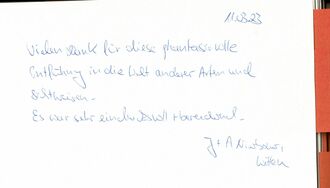 11.03.23
Vielen Dank für diese phantasievolle
Entführung in die Welt anderer Arten und
Sichtweisen.
Es war sehr eindrucksvoll + bereichernd.
J + A
Witten